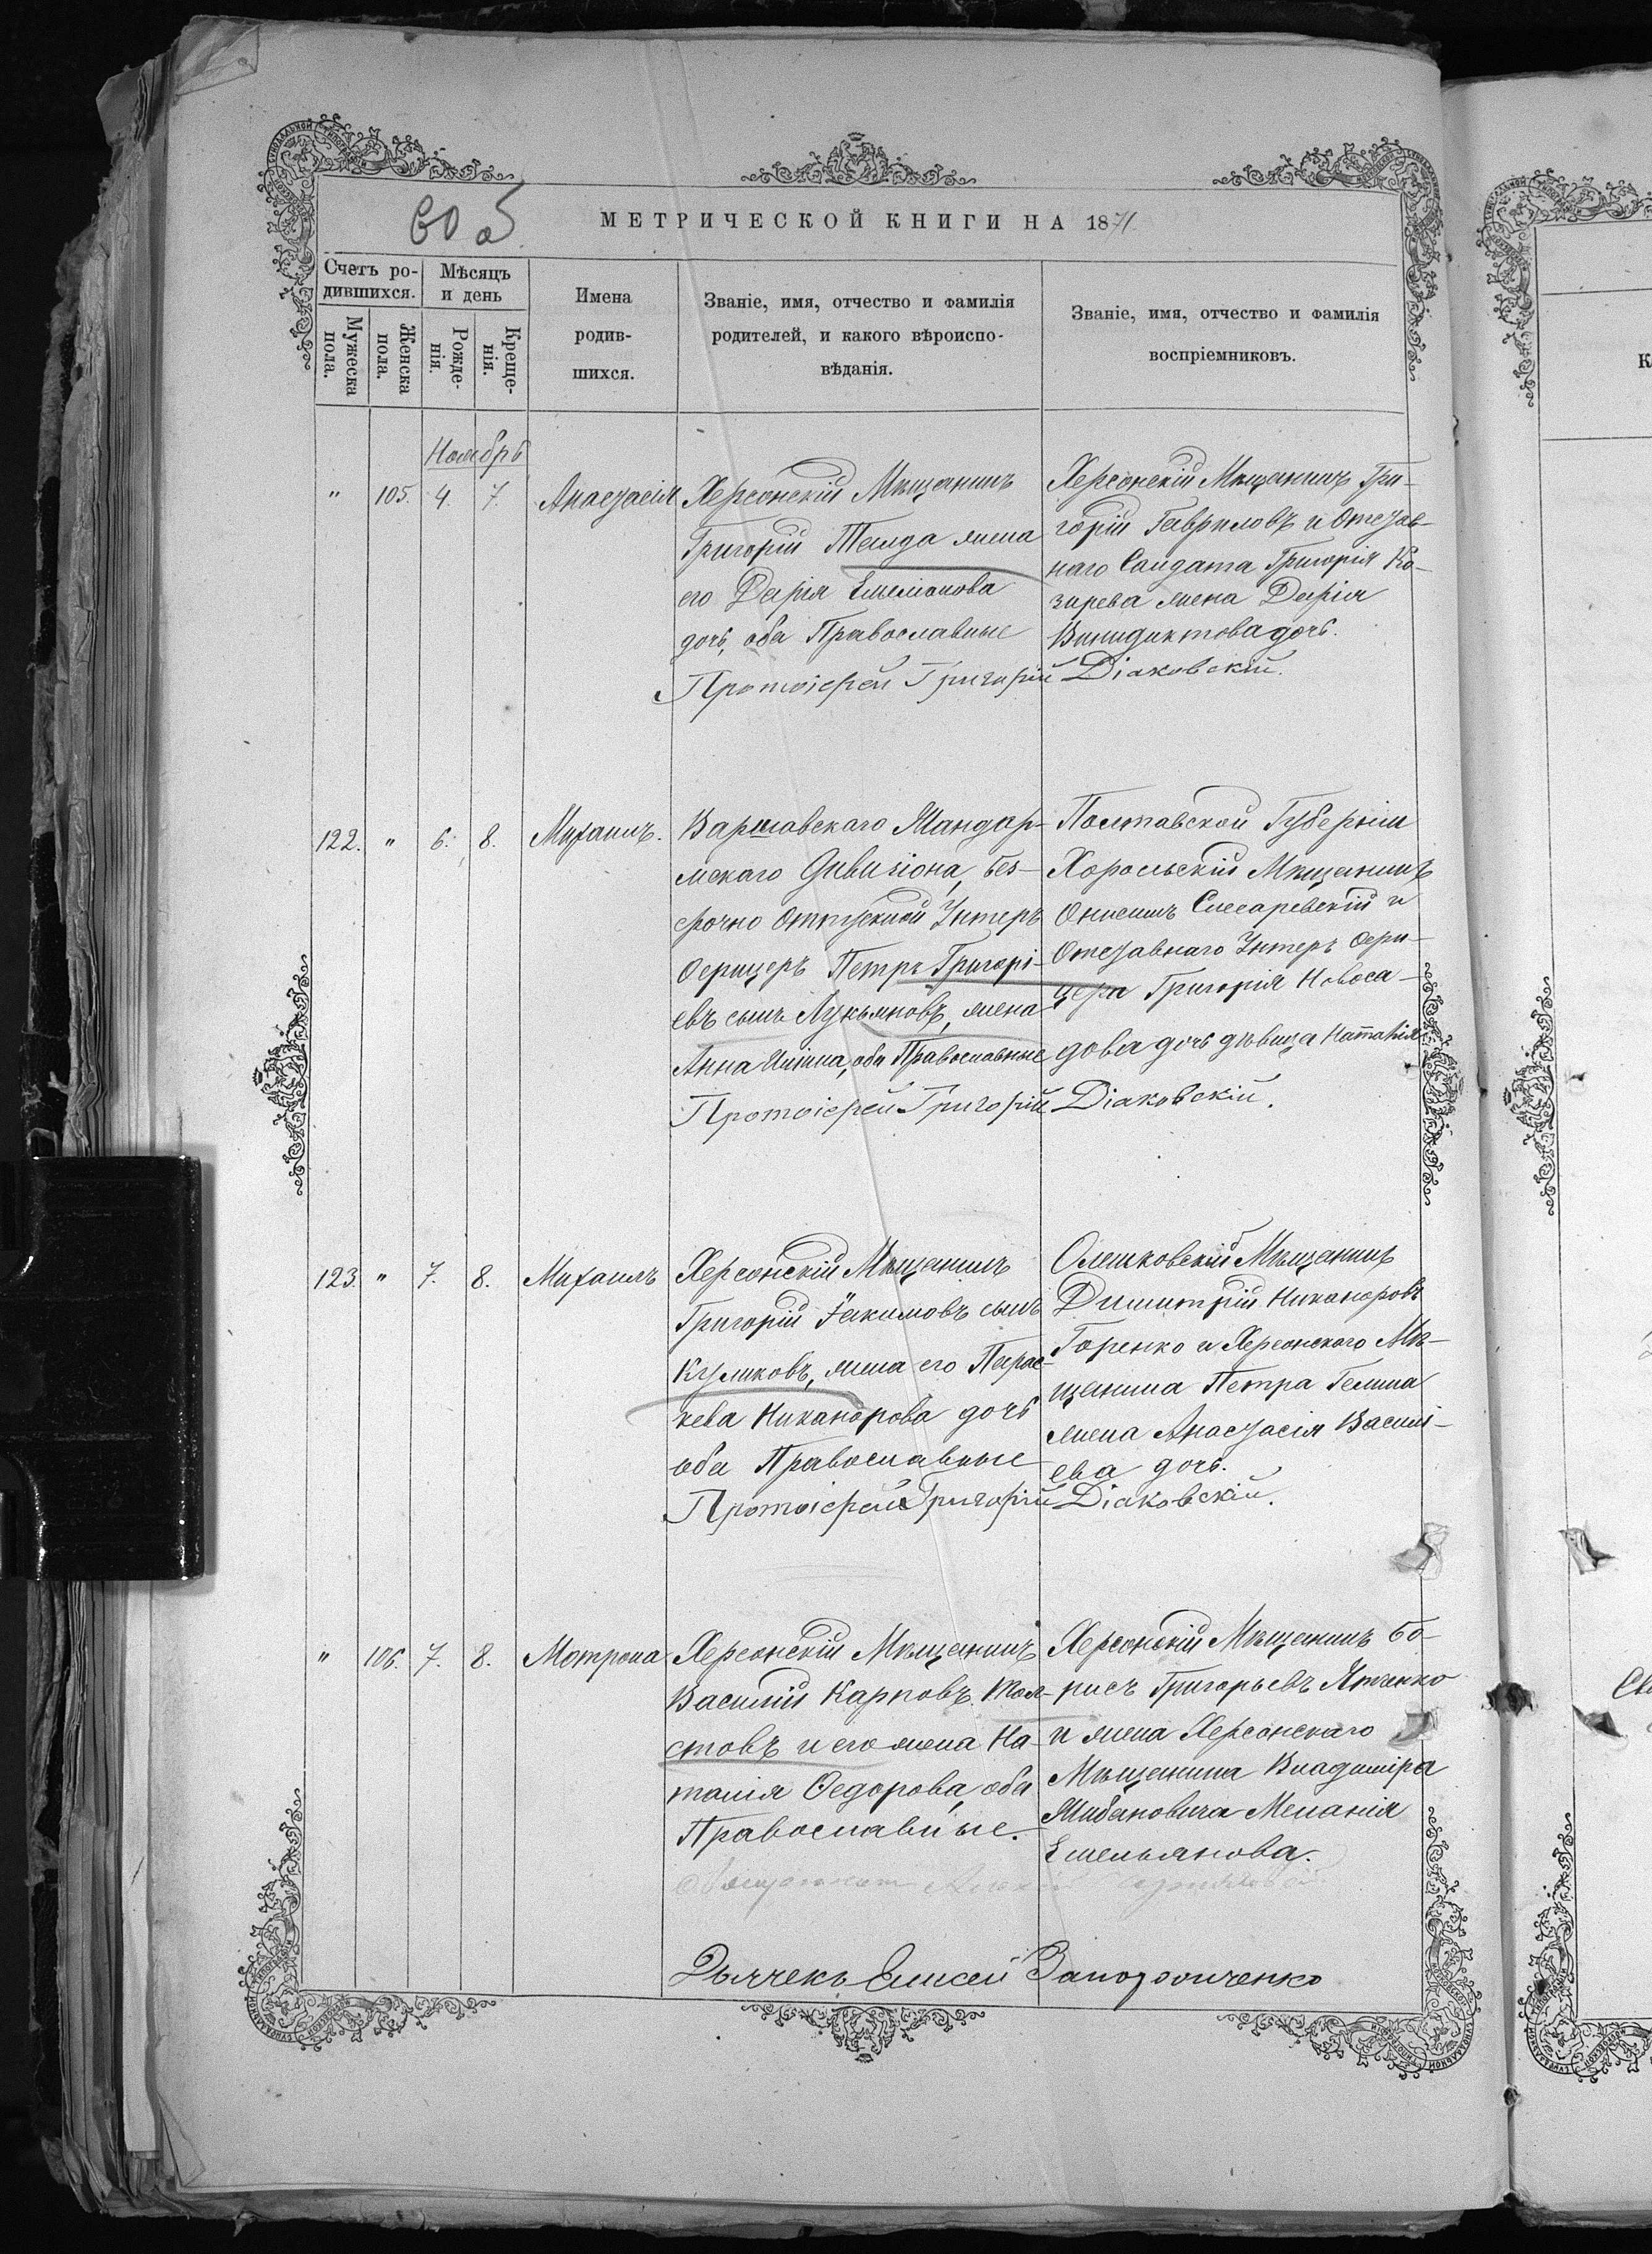 60 об
МЕТРИЧЕСКОЙ КНИГИ НА 1871
Счетъ ро-
дившихся.
Мѣсяцъ
и день
Мужеска
пола.
Женска
пола.
Рожде-
нія.
Креще-
нія.
Имена
родив-
шихся.
Званіе, имя, отчество и фамилія
родителей, и какого вѣроиспо-
вѣданія.
Званіе, имя, отчество и фамилія
воспріемниковъ.
Ноябрь
" 105. 4. 7. Анастасія
Херсонскій Мѣщанинъ
Григорій жена
его Дарія Емеліанова
дочь, оба Православные
Херсонскій Мѣщанинъ Гри-
горій Гавриловъ и Отстав-
наго Салдата Григорія Ко-
зирева жена Дарія
Винидиктова дочь.
Протоіерей Григорій Діаковскій.
122. " 6. 8. Михаилъ.
Варшавскаго Жандар-
мскаго Дивизіона, без-
срочно отпускной Унтеръ
Офицеръ Петръ Григорі-
евъ сынъ Лукьяновъ, жена
Анна оба Православные
Полтавской Губерніи
Хорольскій Мѣщанинъ
Онисимъ Слесаревскій и
Отставнаго Унтеръ Офи-
цера Григорія Новоса-
дова дочь дѣвица Наталія
Протоіерей Григорій Діаковскій.
123. " 7. 8. Михаилъ
Херсонскій Мѣщанинъ
Григорій Іакимовъ сынъ
Куликовъ, жена его Парас-
кева Никанорова дочь
оба Православные
Олешковскій Мѣщанинъ
Димитрій Никаноровъ
Горенко и Херсонскаго Мѣ-
щанина Петра Гелина
жена Анастасія Василі-
ева дочь.
Протоіерей Григорій Діаковскій.
" 106. 7. 8. Мотрона
Херсонскій Мѣщанинъ
Василій Карповъ Тол-
стовъ и его жена На-
талія Федорова, оба
Православные.
Херсонскій Мѣщанинъ Бо-
рисъ Григорьевъ Яценко
и жена Херсонскаго
Мѣщанина Владиміра
Меланія
Емельянова.
Дьячекъ Елисей